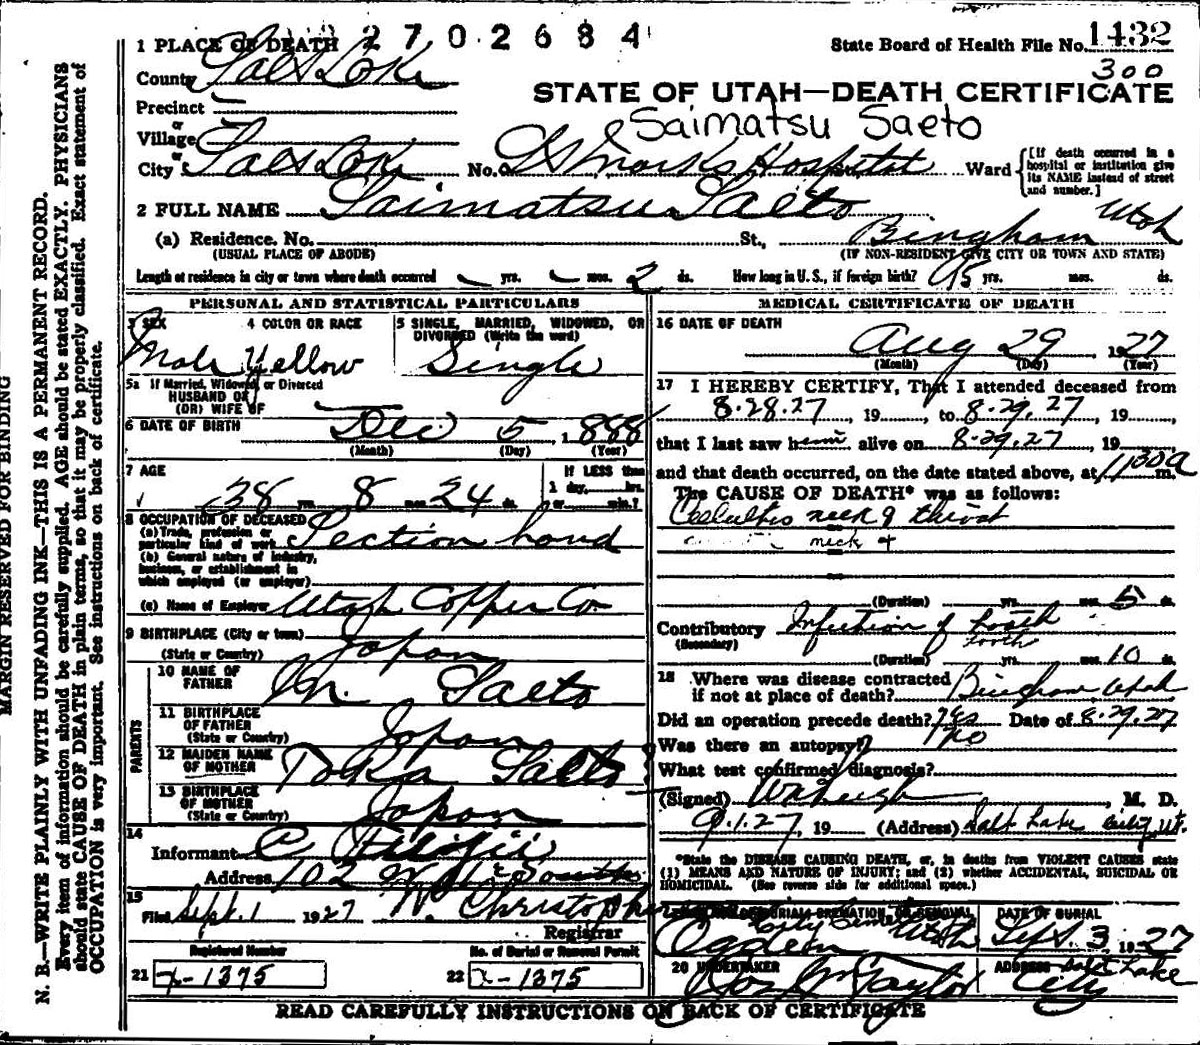 2702684
State Board of Health File No. 1432
300
1 PLACE OF DEATH
County Salt Lake
STATE OF UTAH—DEATH CERTIFICATE
Precinct
or
Village
Saimatsu Saeto
or
City Salt Lake No. St Marks Hospital Ward {[If death occurred in a hospital or institution give its NAME instead of street and number.]
2 FULL NAME Saimatsu Saeto
(a) Residence. No. St., Bingham Utah
(USUAL PLACE OF ABODE) (IF NON-RESIDENT GIVE CITY OR TOWN AND STATE)
Length of residence in city or town where death occurred yrs. mos. 2 ds. How long in U. S., if foreign birth? yrs. mos. ds.
PERSONAL AND STATISTICAL PARTICULARS
3 SEX 4 COLOR OR RACE 5 SINGLE, MARRIED, WIDOWED, OR DIVORCED (Write the word)
Male Yellow Single
5a If Married, Widowed, or Divorced
HUSBAND OF
(OR) WIFE OF
6 DATE OF BIRTH Dec 5, 1888
(Month) (Day) (Year)
7 AGE If LESS than
1 day, hrs.
38 yrs. 8 mos. 24 ds. or min.?
8 OCCUPATION OF DECEASED
(a) Trade, profession or particular kind of work Section hand
(b) General nature of industry, business, or establishment in which employed (or employer)
(c) Name of Employer Utah Copper Co
9 BIRTHPLACE (City or town)
(State or Country) Japan
PARENTS
10 NAME OF FATHER M. Saeto
11 BIRTHPLACE OF FATHER
(State or Country) Japan
12 MAIDEN NAME OF MOTHER Toka Saeto ?
13 BIRTHPLACE OF MOTHER
(State or Country) Japan
14
Informant
Address 102 W
15
Filed Sept. 1 1927 W. Christopherson
Registrar
Registered Number No. of Burial or Removal Permit
21 x-1375 22 x-1375
MEDICAL CERTIFICATE OF DEATH
16 DATE OF DEATH
Aug 29 1927
(Month) (Day) (Year)
17 I HEREBY CERTIFY, That I attended deceased from
8-28-27, 19 , to 8-29-27, 19 ,
that I last saw him alive on 8-29-27, 19
and that death occurred, on the date stated above, at 1130a m.
The CAUSE OF DEATH* was as follows:
Cellulitis neck & throat
neck &
(Duration) yrs. mos. 5 ds.
Contributory Infection of tooth
(Secondary) tooth
(Duration) yrs. mos. 10 ds.
18 Where was disease contracted
if not at place of death? Bingham, Utah
Did an operation precede death? Yes Date of 8-29-27
Was there an autopsy? no
What test confirmed diagnosis?
(Signed) , M. D.
9-1-27, 19 (Address) Salt Lake City, Ut.
*State the DISEASE CAUSING DEATH, or, in deaths from VIOLENT CAUSES state
(1) MEANS AND NATURE OF INJURY; and (2) whether ACCIDENTAL, SUICIDAL OR
HOMICIDAL. (See reverse side for additional space.)
BURIAL CREMATION, OR REMOVAL DATE OF BURIAL
City Cemetery
Ogden Utah Sept. 3, 1927
20 UNDERTAKER ADDRESS Salt Lake
Jos Wm Taylor City
READ CAREFULLY INSTRUCTIONS ON BACK OF CERTIFICATE
MARGIN RESERVED FOR BINDING
N. B.—WRITE PLAINLY WITH UNFADING INK—THIS IS A PERMANENT RECORD.
Every item of information should be carefully supplied. AGE should be stated EXACTLY. PHYSICIANS
should state CAUSE OF DEATH in plain terms, so that it may be properly classified. Exact statement of
OCCUPATION is very important. See instructions on back of certificate.